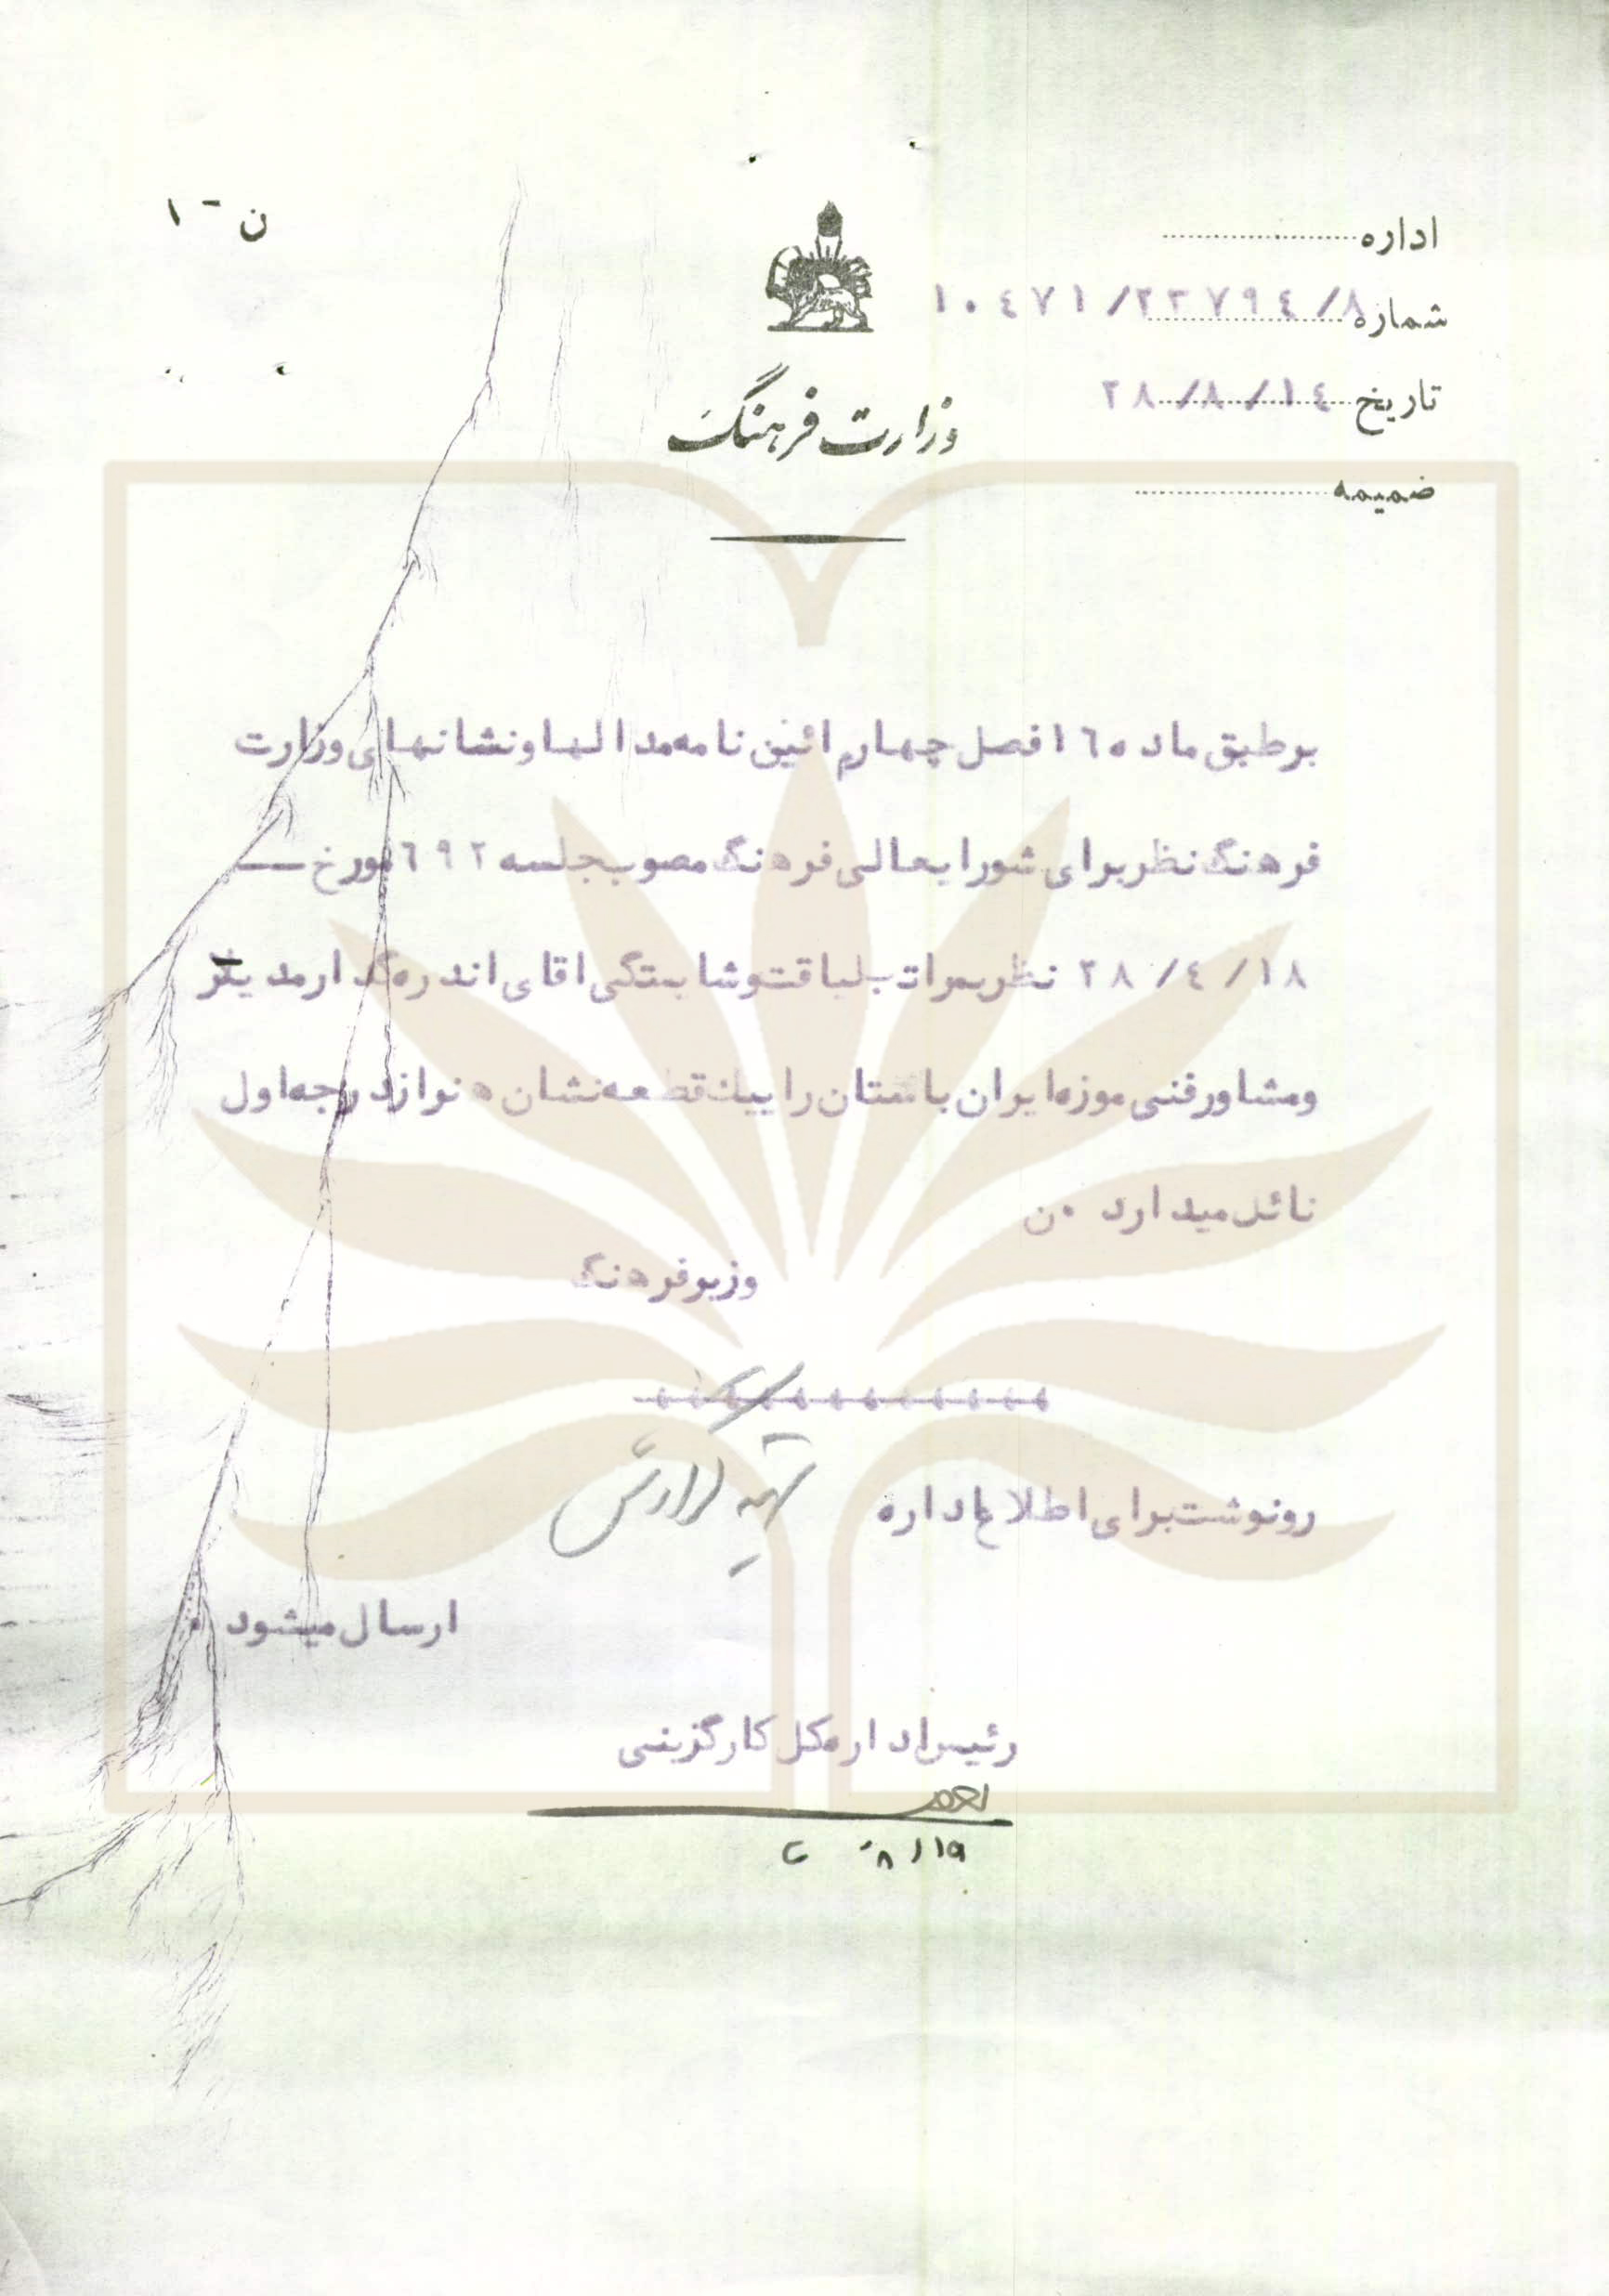 ن - ۱
اداره
شماره ۱۰٤۷۱/۲۲۷۹٤/۸
تاریخ ۲۸/۸/۱٤
ضمیمه
وزارت فرهنگ
برطبق ماده ۱٦ فصل چهارم ائین نامه مدالها و نشانهای وزارت
فرهنگ نظر برای شورایعالی فرهنگ مصوب جلسه ٦۹۲ مورخ —
۲۸/٤/۱۸ نظر بمراتب لیاقت و شایستگی اقای اندره گدار مدیر
و مشاور فنی موزه ایران باستان را بیک قطعه نشان درجه اول
نائل میدارد ۰ن
وزیر فرهنگ
++++++++++++
رونوشت برای اطلاع اداره تهیه گزارش
ارسال میشود ۰
رئیس اداره کل کارگزینی